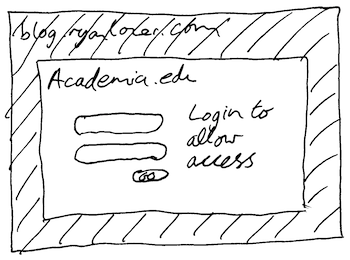 blog.ryaloxer.com
Academia.edu
Login to
allow
access
Go